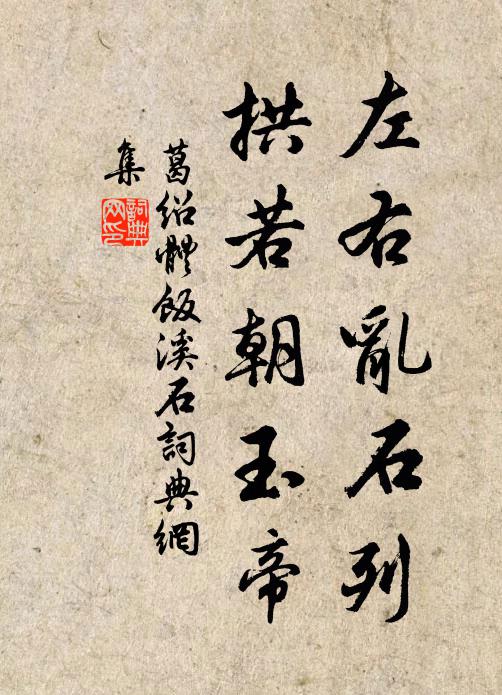 左右亂石列
拱若朝玉帝
葛紹體飯溪石詞典網
集
詞典
网印